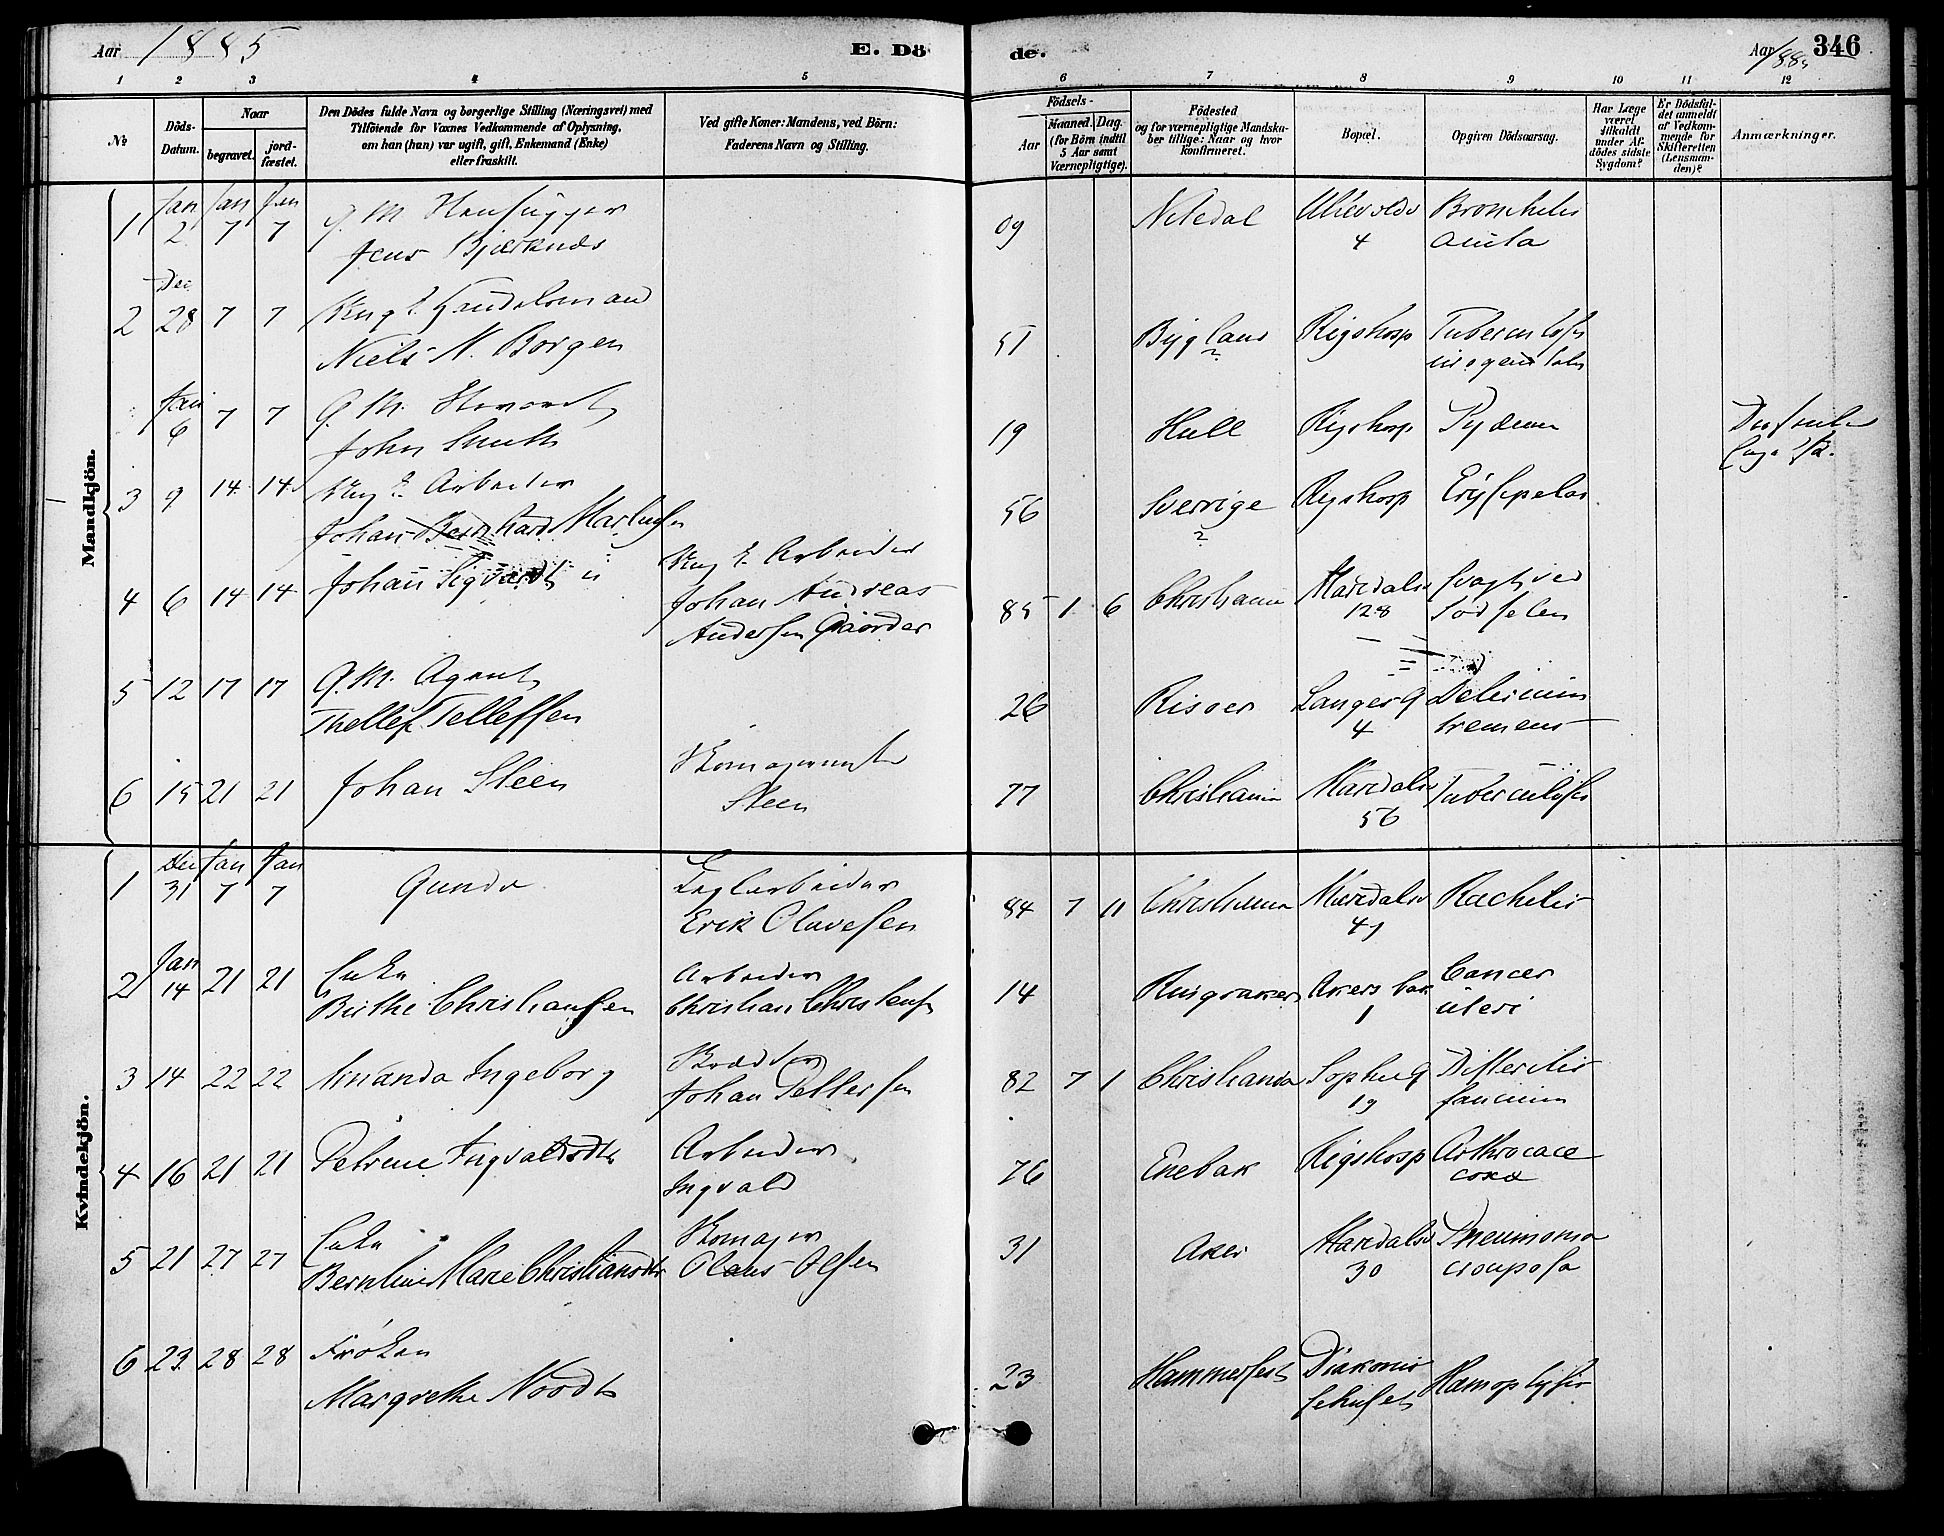 Aar 1885 E. Dö
de. Aar 1885 346
1 2 3 4 5
6 7 8 9 10 11 12
№
Döds-
Datum.
Naar
begravet.
jord-
fæstet.
Den Dödes fulde Navn og borgerlige Stilling (Næringsvei) med
Tilföiende for Voxnes Vedkommende af Oplysning,
om han (hun) var ugift, gift, Enkemand (Enke)
eller fraskilt.
Ved gifte Koner: Mandens, ved Börn:
Faderens Navn og Stilling.
Födsels-
Aar
Maaned. Dag.
(for Börn indtil
5 Aar samt
Værnepligtige).
Födested
og for værnepligtige Mandska-
ber tillige: Naar og hvor
konfirmeret.
Bopæl.
Opgiven Dödsaarsag.
Har Læge
været
tilkaldt
under Af-
dödes sidste
Sygdom?
Er Dödsfal-
det anmeldt
af Vedkom-
mende for
Skifteretten
(Lensman-
den)?
Anmærkninger.
Mandkjön.
1 Jan 2 Jan 7 Jan 7 G. M.
Jens Bjerknes
09 Nitedal Ullevoldsv 4 Bronchitis acuta
2 Dec 28 7 7 Ung E. Handelsmand
Niels N. Borgen
51 Bygland ? Rigshosp Tuberculosis urogenitalis
Jan 6 7 7 G. M.
John Smith
19 Hull Rigshosp Pydemi
3 9 14 14 Ung E. Arbeider
Johan Bernhard
56 Sverrige ? Rigshosp Erysipelas
4 6 14 14 Johan Sigvardt u Ung E. Arbeider
Johan Andreas
Andersen Gaarder
85 1 6 Christiania Maridalsv 128 Svagt ved Födselen
5 12 17 17 G. M. Agent
Thellef Telleffsen
26 Risoer Langes G 4 Delirium tremens
6 15 21 21 Johan Steen Skomagermester
Steen
77 Christiania Maridalsv 56 Tuberculosis
Kvindekjön.
1 Dec 31 Jan 7 Jan 7 Gunda Teglarbeider
Erik Olavesen
84 7 11 Christiania Maridalsv 41 Rachitis
2 Jan 14 21 21 Enke
Birthe Christiansen Arbeider
Christian Christensen
14 Ringsaker Akersbak 1 Cancer uteri
3 14 22 22 Amanda Ingeborg
Johan Pettersen
82 7 1 Christiania Sophies G 19 Difteritis faucium
4 16 21 21 Petrine Ingvaldsdtr Arbeider
Ingvald
76 Enebak Rigshosp Arthrocace coxæ
5 21 27 27 Enke
Berntine Marie Christiansdtr Skomager
Olaus Olsen
31 Aker Maridalsv 30 Pneumonia crouposa
6 23 28 28 Fröken
Margrethe Noodt
23 Hammerfest Diakonissehuset Hæmoptysis